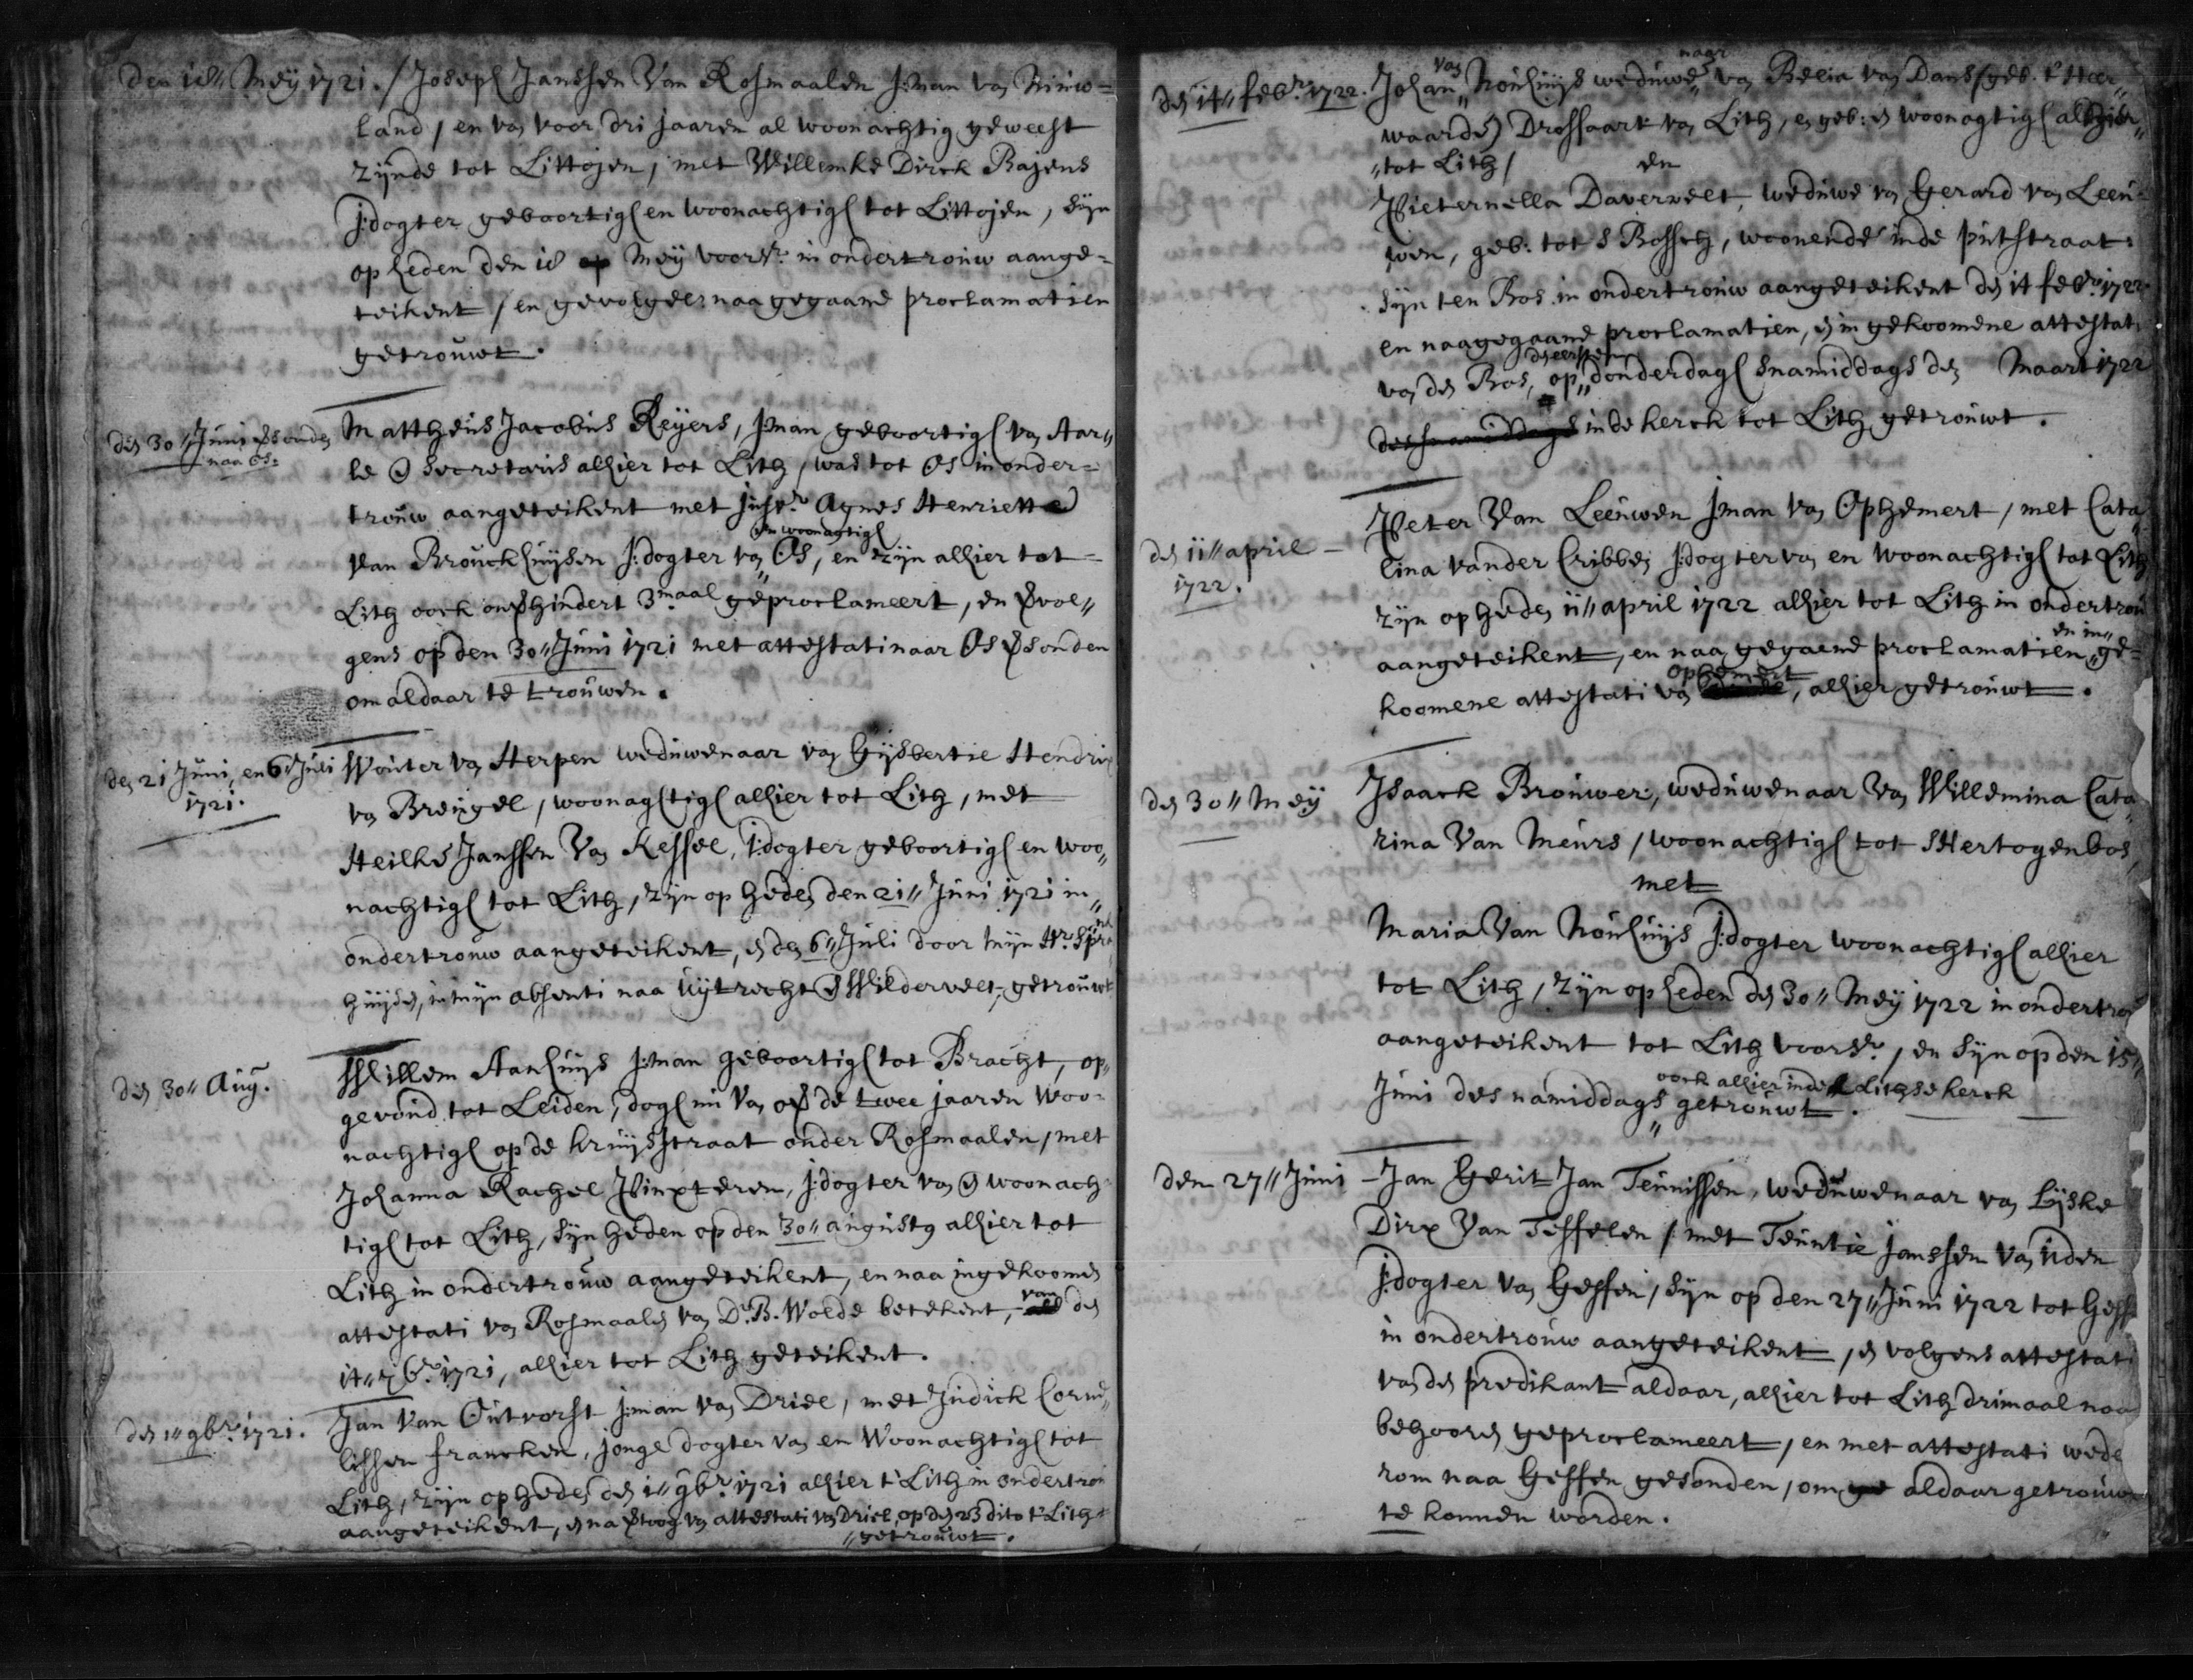 Den 18" Meÿ 1721. / Joseph Janssen Van Rosmaalen J:man van Niuw=
land / en van voor dri jaaren al woonachtig geweest
zijnde tot Littojen, met Willemke Dirck Bajens
J:dogter geboortigh en woonachtigh tot Littojen, sijn
op heden den 18 Meÿ voorsr. in ondertrouw aange=
teikent / en gevolgens naagegaane proclamatien
getrouwt.
den 30" Juni versonden
naa Os:
Mattheus Jacobus Reÿers, J:man geboortigh van Aar"
le en Secretaris alhier tot Lith, was tot Os in onder=
trouw aangeteikent met Jufvr. Agnes Henriette
en woonagtigh
Van Brouckhuijsen J:dogter van" Os, en zijn alhier tot=
Lith oock onverhindert 3maal geproclameert, en vervol"
gens op den 30" Juni 1721 met attestati naar Os versonden
om aldaar te trouwen.
den 21 Juni, en 6 Juli
1721.
Wouter van Herpen weduwenaar van Gijsbertie Hendrix
van Breugel, woonagtigh alhier tot Lith, met
Heilke Janssen Van Kessel, J:dogter geboortigh en woo"
nachtigh tot Lith, zijn op heden den 21" Juni 1721 in"
ondertrouw aangeteikent, en den 6" Juli door mijn Hr.
in mijn absenti naa Uÿtrecht en Wilderveet, getrouwt
den 30" Aug.
Willem Aanhuijs J:man geboortigh tot Bracht, op"
gevoud tot Leiden, dogh nu van over de twee jaaren woo=
nachtigh op de kruijsstraat onder Rosmaalen, met
Johanna Rachel Pinxteren, J:dogter van en woonach
tigh tot Lith, sijn heden op den 30" augusty alhier tot
Lith in ondertrouw aangeteikent, en naa ingekoomen
attestati van Rosmaalen van D. B. Wolde betekent, van den
14" 7br. 1721, alhier tot Lith geteikent.
den 1" 9br. 1721.
Jan Van Outvorst J:man van Driel, met Judick Corne"
lissen francken, jonge dogter van en Woonachtigh tot
Lith, zijn op heden den 1" 9br. 1721 alhier t' Lith in ondertrou
aangeteikent, en na vertoog van attestati van Driel, op den 23 dito t' Lith
"getrouwt.
den 14" febr. 1722.
van naar
Johan" Nouhuijs weduwe" van Belia van Dans / geb. t' Heer"
waarde) Drossaart van Lith, en geb: en woonagtigh alhier"
"tot Lith / en
Pieternella Daverveelt, weduwe van Gerard van Leeu=
wen, geb: tot s Bossch, woonende inde putstraat.
sijn ten Bos in ondertrouw aangeteikent den 14 febr. 1722
en naagegaane proclamatien, en ingekoomene attestati
den eersten
van den Bos, op" donderdagh snamiddags den Maart 1722
des snamiddags in de kerck tot Lith getrouwt.
den 11" april
1722.
Peter Van Leeuwen J:man van Ophemert, met Cata"
lina vander Cribben J:dogter van en woonachtigh tot Lith
zijn op heden 11" april 1722 alhier tot Lith in ondertrou
en in"
aangeteikent, en naagegaene proclamatien" ge=
ophemert
koomene attestati van, alhier getrouwt.
den 30" Meÿ
Isaack Brouwer, weduwenaar Van Willemina Cata"
rina Van Meurs, woonachtigh tot sHertogenbos,
met
Maria Van Nouhuijs J:dogter woonachtigh alhier
tot Lith, zijn op heden den 30" Meÿ 1722 in ondertrou
aangeteikent tot Lith voorsr., en sijn op den 15"
oock alhier inde Lithse kerck
Juni des namiddags" getrouwt.
den 27" Juni
Jan Gerit Jan Teunissen, weduwenaar van Lijske
Dirx Van Teffelen / met Teuntie Janssen Van Uden
J:dogter van Geffen, sijn op den 27" Juni 1722 tot Geff
in ondertrouw aangeteikent, en volgens attestati
van den predikant aldaar, alhier tot Lith drimaal naa
behooren geproclameert, en met attestati wede
rom naa Geffen gesonden, om ge aldaar getrouw
te konnen worden.